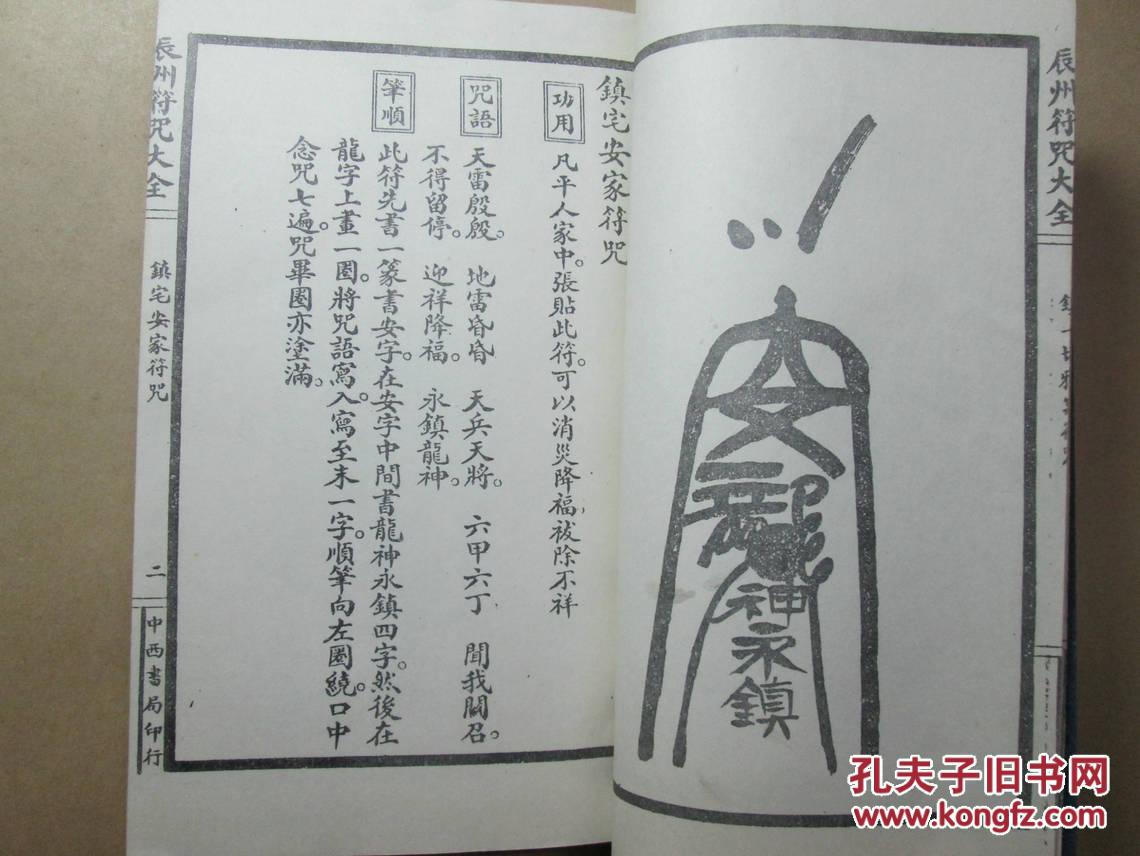 辰州符咒大全
安
龍
神永鎮
鎮宅安家符咒
功用 凡平人家中。張貼此符。可以消災降福、祓除不祥
咒語 天雷殷殷。 地雷昏昏 天兵天將。 六甲六丁 聞我關召。
不得留停。 迎祥降福。 永鎮龍神。
筆順 此符先書一篆書安字。在安字中間書龍神永鎮四字。然後在
龍字上畫一圈。將咒語寫入。寫至末一字。順筆向左圈繞。口中
念咒七遍。咒畢圈亦塗滿。
辰州符咒大全 鎮宅安家符咒 二 中西書局印行
孔夫子旧书网
www.kongfz.com